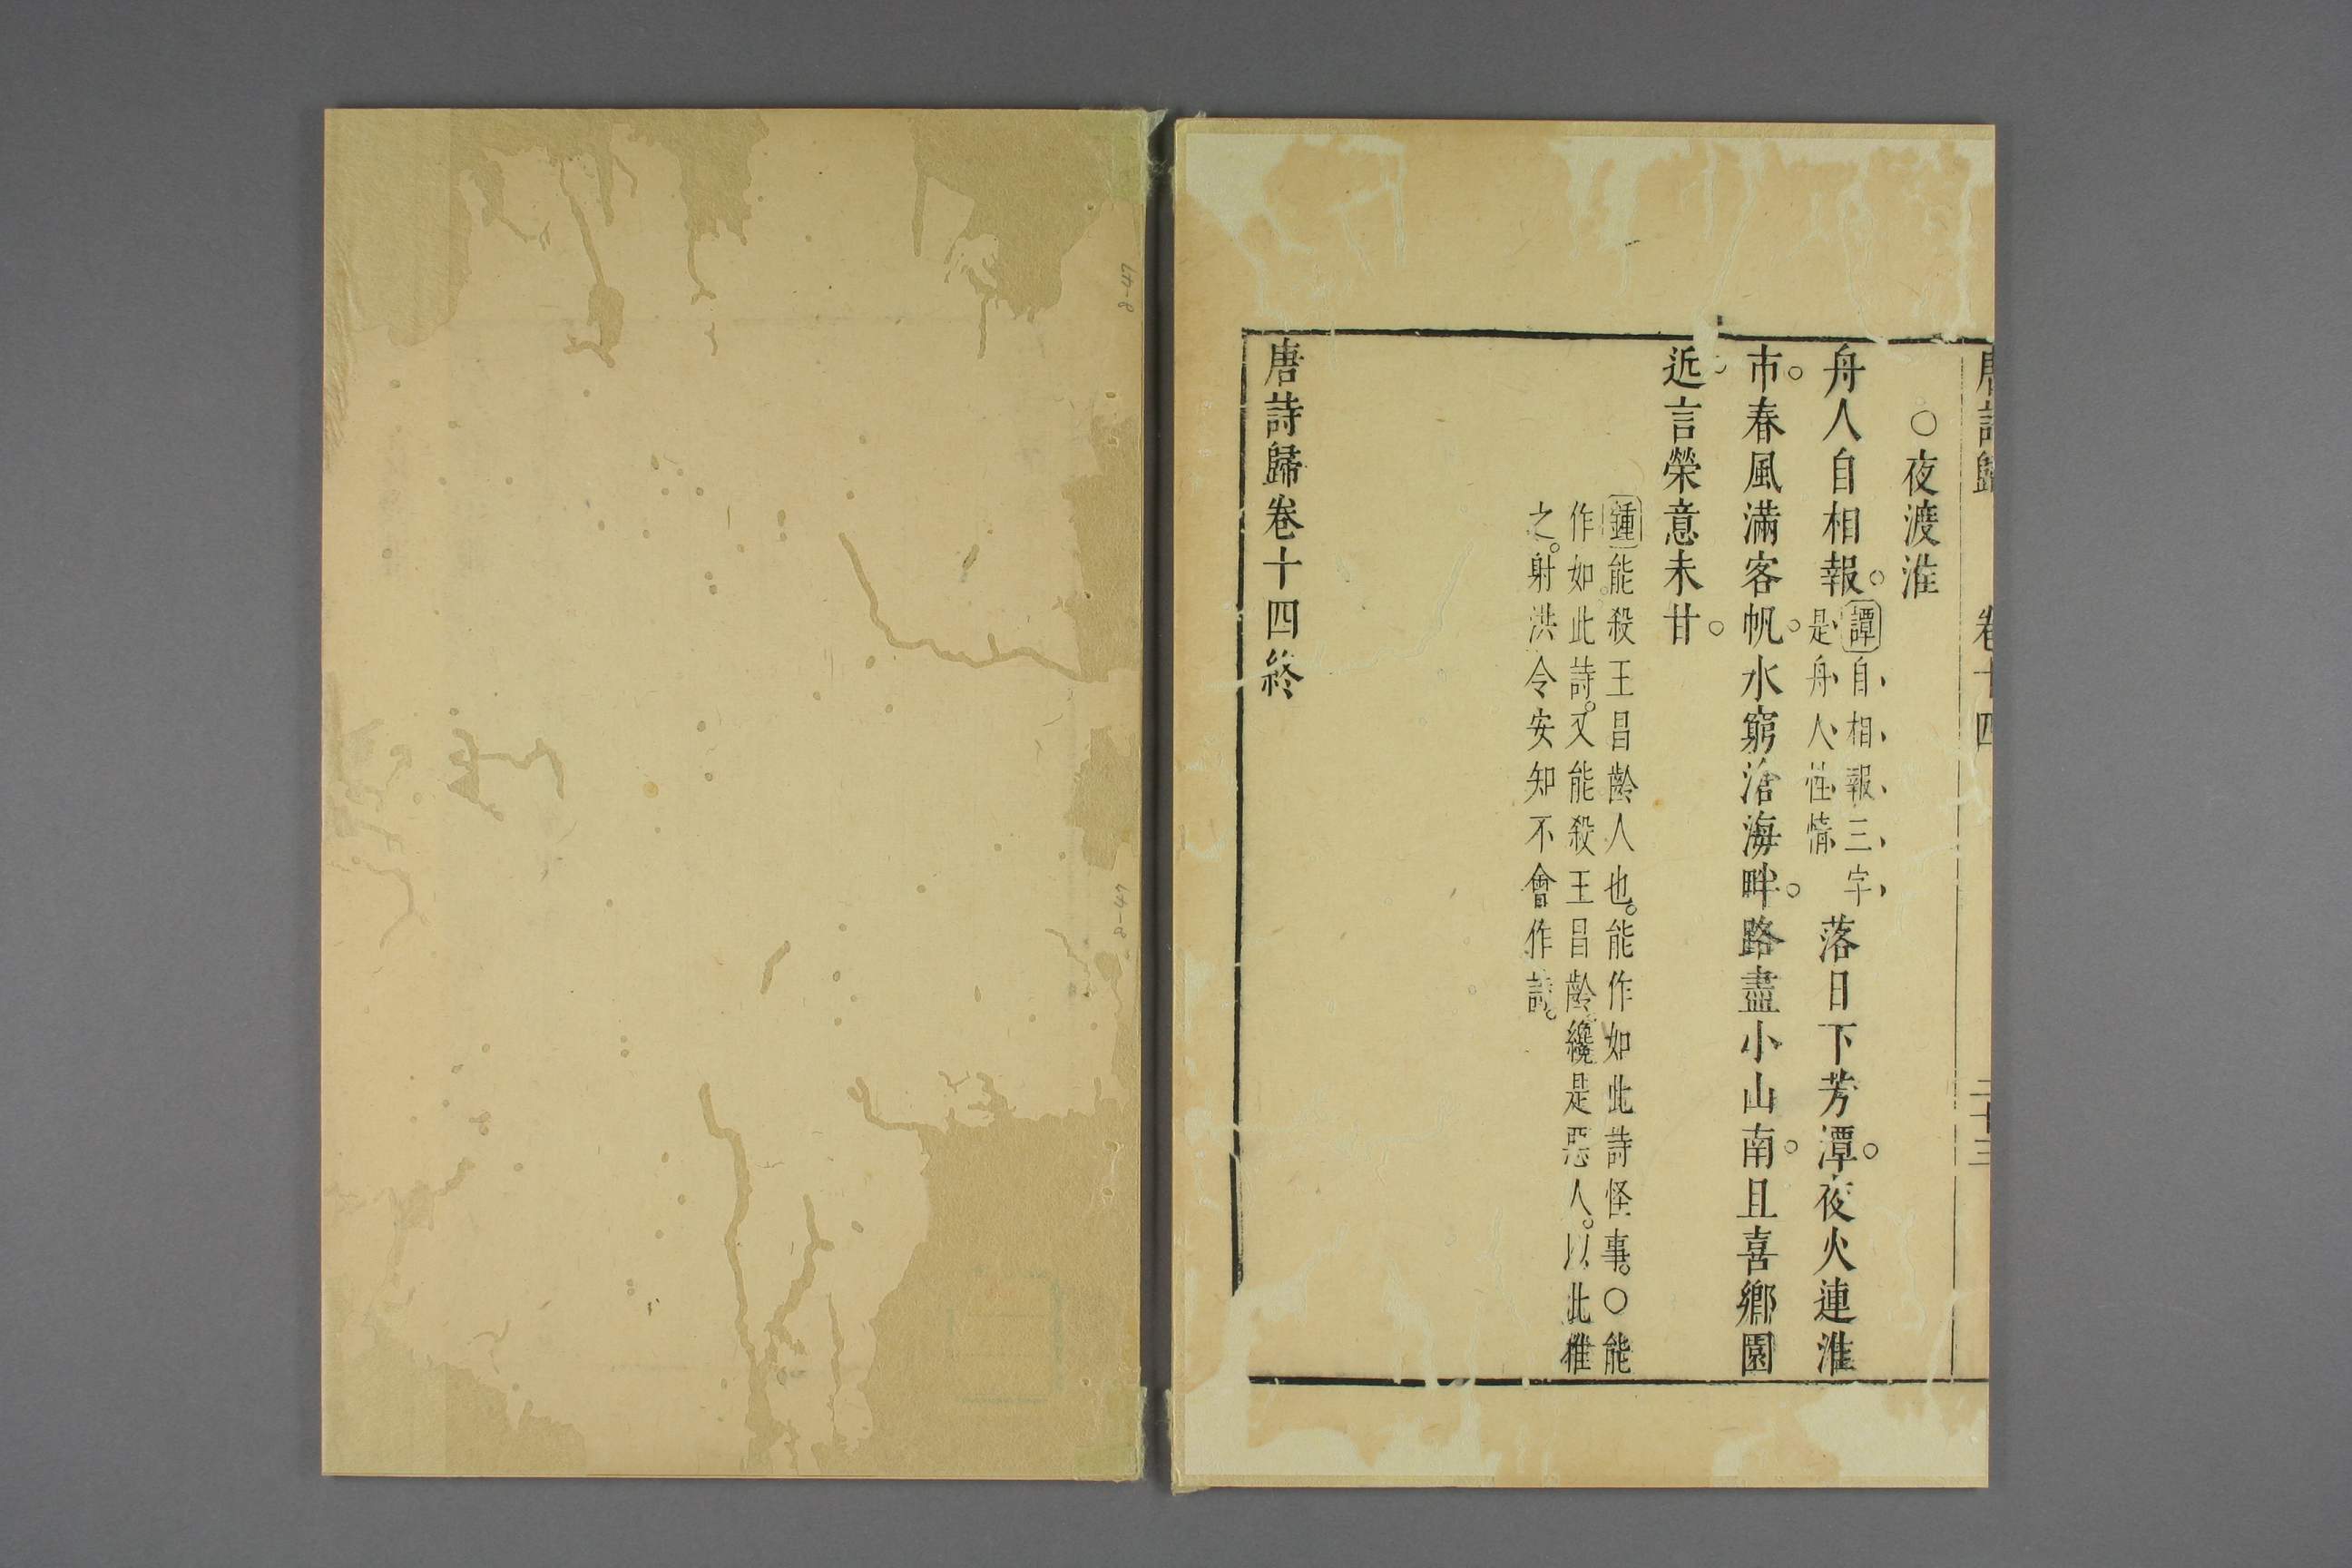 唐詩歸 卷十四 二十三
○夜渡淮
舟人自相報。譚自相報三字
是舟人性情
落日下芳潭。夜火連淮
市。春風滿客帆。水窮滄海畔。路盡小山南。且喜鄉園
近。言榮意未甘。
鍾能殺王昌齡人也。能作如此詩怪事。○能
作如此詩。又能殺王昌齡。纔是惡人。以此推
之。射洪令安知不會作詩。
唐詩歸卷十四終